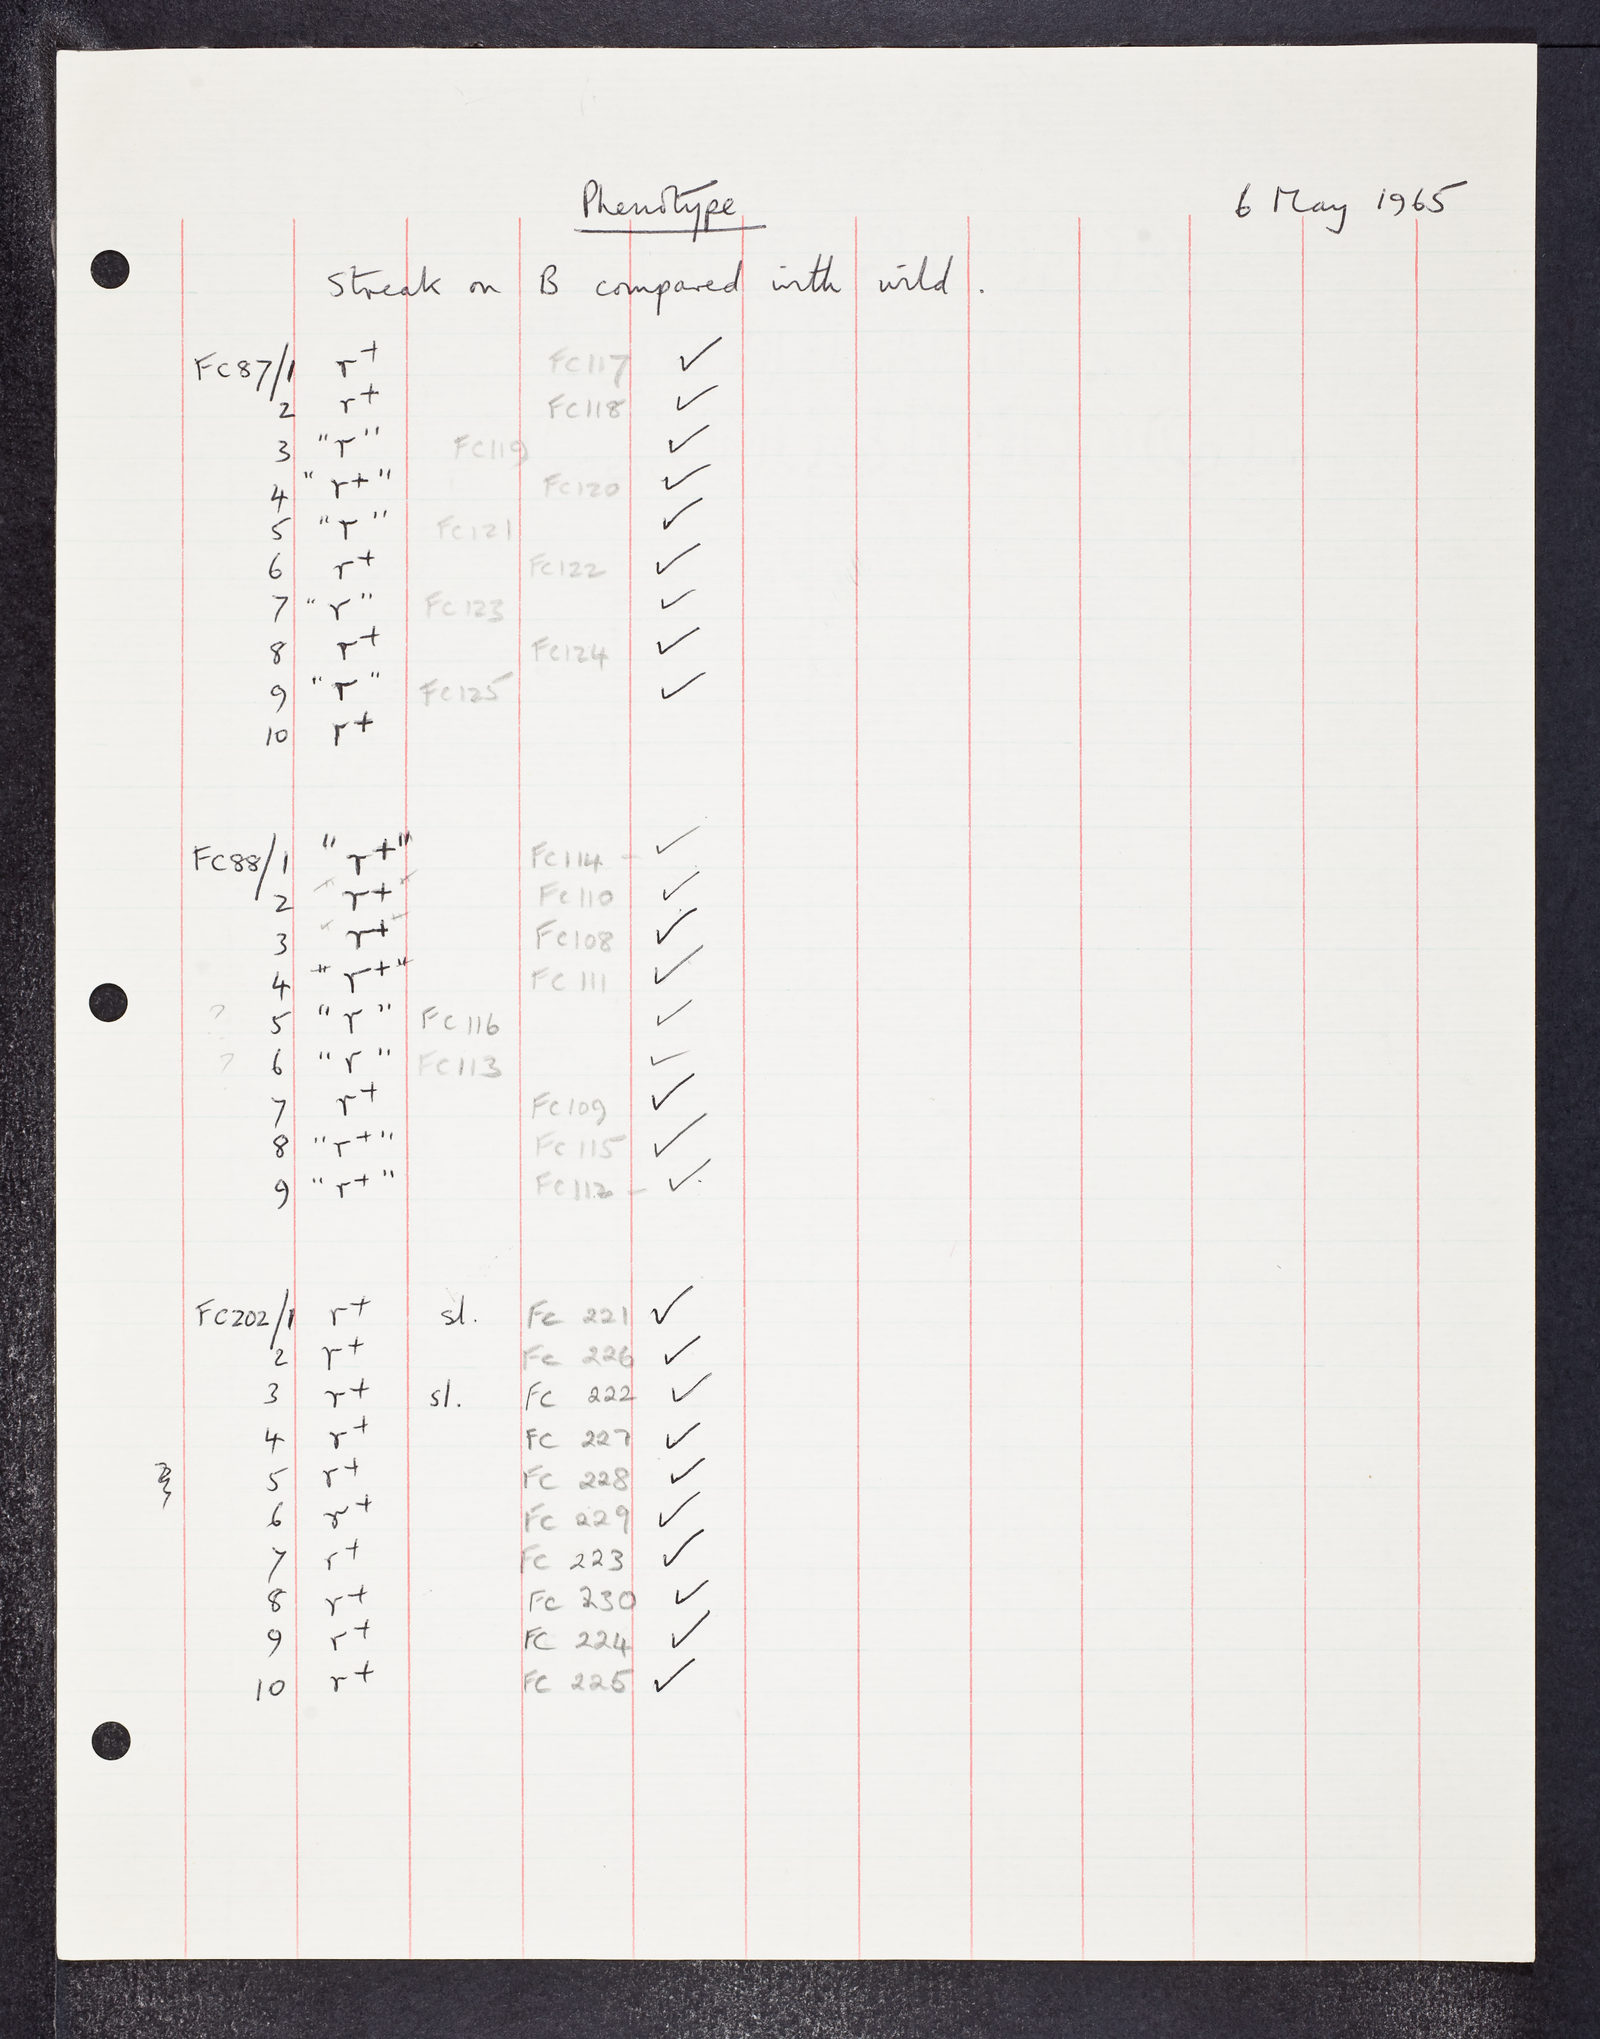 Phenotype
6 May 1965
Streak on B compared with wild.
FC87/1 r+ FC117 ✓
2 r+ FC118 ✓
3 "r" FC119 ✓
4 "r+" FC120 ✓
5 "r" FC121 ✓
6 r+ FC122 ✓
7 "r" FC123 ✓
8 r+ FC124 ✓
9 "r" FC125 ✓
10 r+
FC88/1 "r+" FC114 – ✓
2 "r+" FC110 ✓
3 "r+" FC108 ✓
4 "r+" FC111 ✓
? 5 "r" FC116 ✓
? 6 "r" FC113 ✓
7 r+ FC109 ✓
8 "r+" FC115 ✓
9 "r+" FC112 – ✓
FC202/1 r+ sl. FC 221 ✓
2 r+ FC 226 ✓
3 r+ sl. FC 222 ✓
4 r+ FC 227 ✓
5 r+ FC 228 ✓
6 r+ FC 229 ✓
7 r+ FC 223 ✓
8 r+ FC 230 ✓
9 r+ FC 224 ✓
10 r+ FC 225 ✓